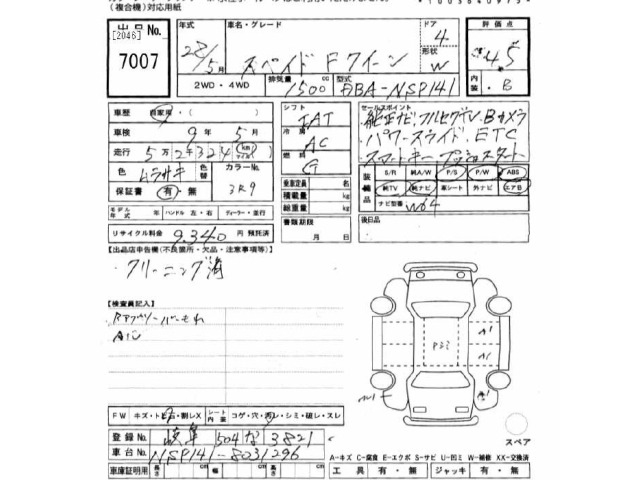 (複合機)対応用紙
出品No.
[2046]
7007
年式 車名・グレード ドア 評価点
28/5月 スペイド Fクイーン 4 4.5
形状 W
内装 B
2WD・4WD 排気量cc 1500 型式 DBA-NSP141
車歴 自家用・( )
車検 9年5月
走行 5万2千324 km マイル
色 ムラサキ 色替 カラーNo. 3R9
保証書 有・無
モデル年式 年 ハンドル 左・右 ディーラー・並行
リサイクル料金 9,340円 預託済
シフト IAT
冷房 AC
燃料 G
乗車定員 名
積載量 kg
総重量 kg
書類期限 月 日
セールスポイント
純正ナビ フルセグTV Bカメラ
パワースライド ETC
スマートキー プッシュスタート
装備品 S/R 純A/W P/S P/W ABS
純TV 純ナビ 革シート 外ナビ エアB
ナビ型番 W64
後日品
【出品店申告欄(不良箇所・欠品・注意事項等)】
クリーニング済
【検査員記入】
A1U
P33
A1
A1
W1
FW キズ・トビ石・割レX シート内張 コゲ・穴・汚レ・シミ・破レ・スレ
登録No. 岐阜 504 な 3821
車台No. NSP141-8031296
車庫証明用 長さ cm 幅 cm 高さ cm
スペア
A-キズ C-腐食 E-エクボ S-サビ U-凹ミ W-補修 XX-交換済
工具 有・無 ジャッキ 有・無